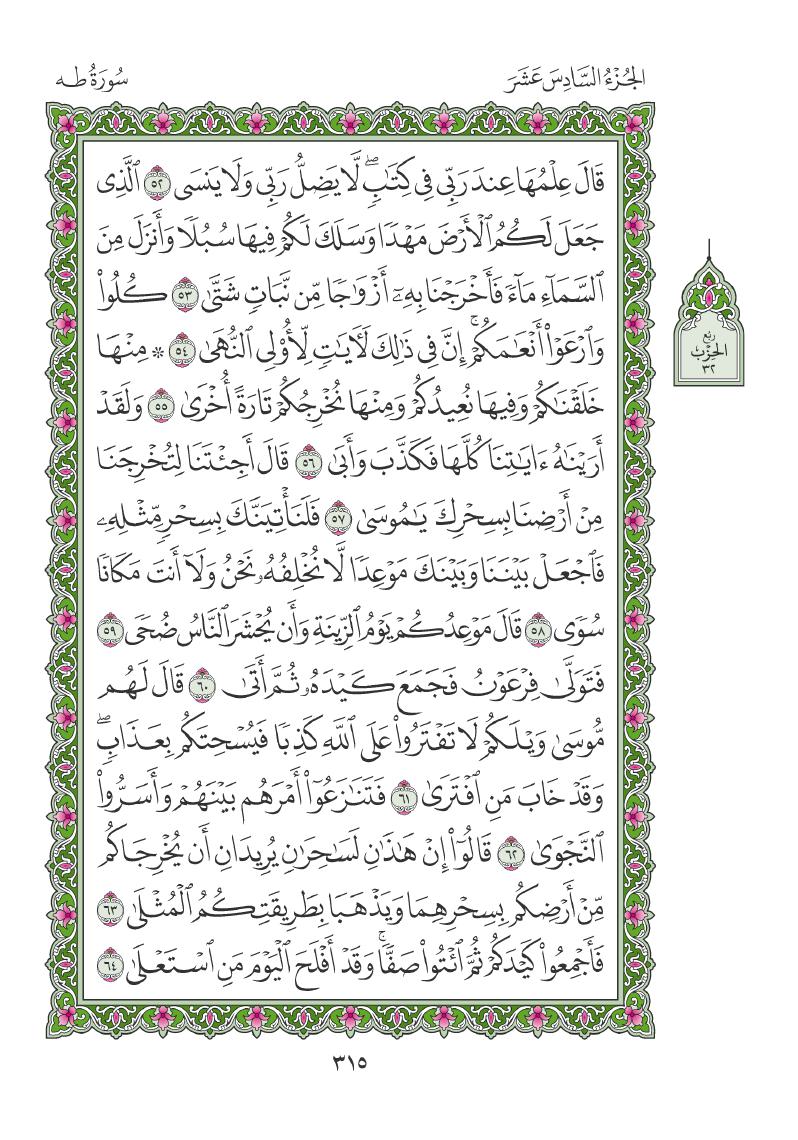 الجُزْءُ السَّادِسَ عَشَرَ
سُورَةُ طه
قَالَ عِلْمُهَا عِندَ رَبِّي فِي كِتَٰبٖۖ لَّا يَضِلُّ رَبِّي وَلَا يَنسَى ٥٢ ٱلَّذِي
جَعَلَ لَكُمُ ٱلۡأَرۡضَ مَهۡدٗا وَسَلَكَ لَكُمۡ فِيهَا سُبُلٗا وَأَنزَلَ مِنَ
ٱلسَّمَآءِ مَآءٗ فَأَخۡرَجۡنَا بِهِۦٓ أَزۡوَٰجٗا مِّن نَّبَاتٖ شَتَّىٰ ٥٣ كُلُواْ
وَٱرۡعَوۡاْ أَنۡعَٰمَكُمۡۚ إِنَّ فِي ذَٰلِكَ لَأٓيَٰتٖ لِّأُوْلِي ٱلنُّهَىٰ ٥٤ ۞ مِنۡهَا
خَلَقۡنَٰكُمۡ وَفِيهَا نُعِيدُكُمۡ وَمِنۡهَا نُخۡرِجُكُمۡ تَارَةً أُخۡرَىٰ ٥٥ وَلَقَدۡ
أَرَيۡنَٰهُ ءَايَٰتِنَا كُلَّهَا فَكَذَّبَ وَأَبَىٰ ٥٦ قَالَ أَجِئۡتَنَا لِتُخۡرِجَنَا
مِنۡ أَرۡضِنَا بِسِحۡرِكَ يَٰمُوسَىٰ ٥٧ فَلَنَأۡتِيَنَّكَ بِسِحۡرٖ مِّثۡلِهِۦ
فَٱجۡعَلۡ بَيۡنَنَا وَبَيۡنَكَ مَوۡعِدٗا لَّا نُخۡلِفُهُۥ نَحۡنُ وَلَآ أَنتَ مَكَانٗا
سُوٗى ٥٨ قَالَ مَوۡعِدُكُمۡ يَوۡمُ ٱلزِّينَةِ وَأَن يُحۡشَرَ ٱلنَّاسُ ضُحٗى ٥٩
فَتَوَلَّىٰ فِرۡعَوۡنُ فَجَمَعَ كَيۡدَهُۥ ثُمَّ أَتَىٰ ٦٠ قَالَ لَهُم
مُّوسَىٰ وَيۡلَكُمۡ لَا تَفۡتَرُواْ عَلَى ٱللَّهِ كَذِبٗا فَيُسۡحِتَكُم بِعَذَابٖۖ
وَقَدۡ خَابَ مَنِ ٱفۡتَرَىٰ ٦١ فَتَنَٰزَعُوٓاْ أَمۡرَهُم بَيۡنَهُمۡ وَأَسَرُّواْ
ٱلنَّجۡوَىٰ ٦٢ قَالُوٓاْ إِنۡ هَٰذَٰنِ لَسَٰحِرَٰنِ يُرِيدَانِ أَن يُخۡرِجَاكُم
مِّنۡ أَرۡضِكُم بِسِحۡرِهِمَا وَيَذۡهَبَا بِطَرِيقَتِكُمُ ٱلۡمُثۡلَىٰ ٦٣
فَأَجۡمِعُواْ كَيۡدَكُمۡ ثُمَّ ٱئۡتُواْ صَفّٗاۚ وَقَدۡ أَفۡلَحَ ٱلۡيَوۡمَ مَنِ ٱسۡتَعۡلَىٰ ٦٤
ربع
الحزب
٣٢
٣١٥